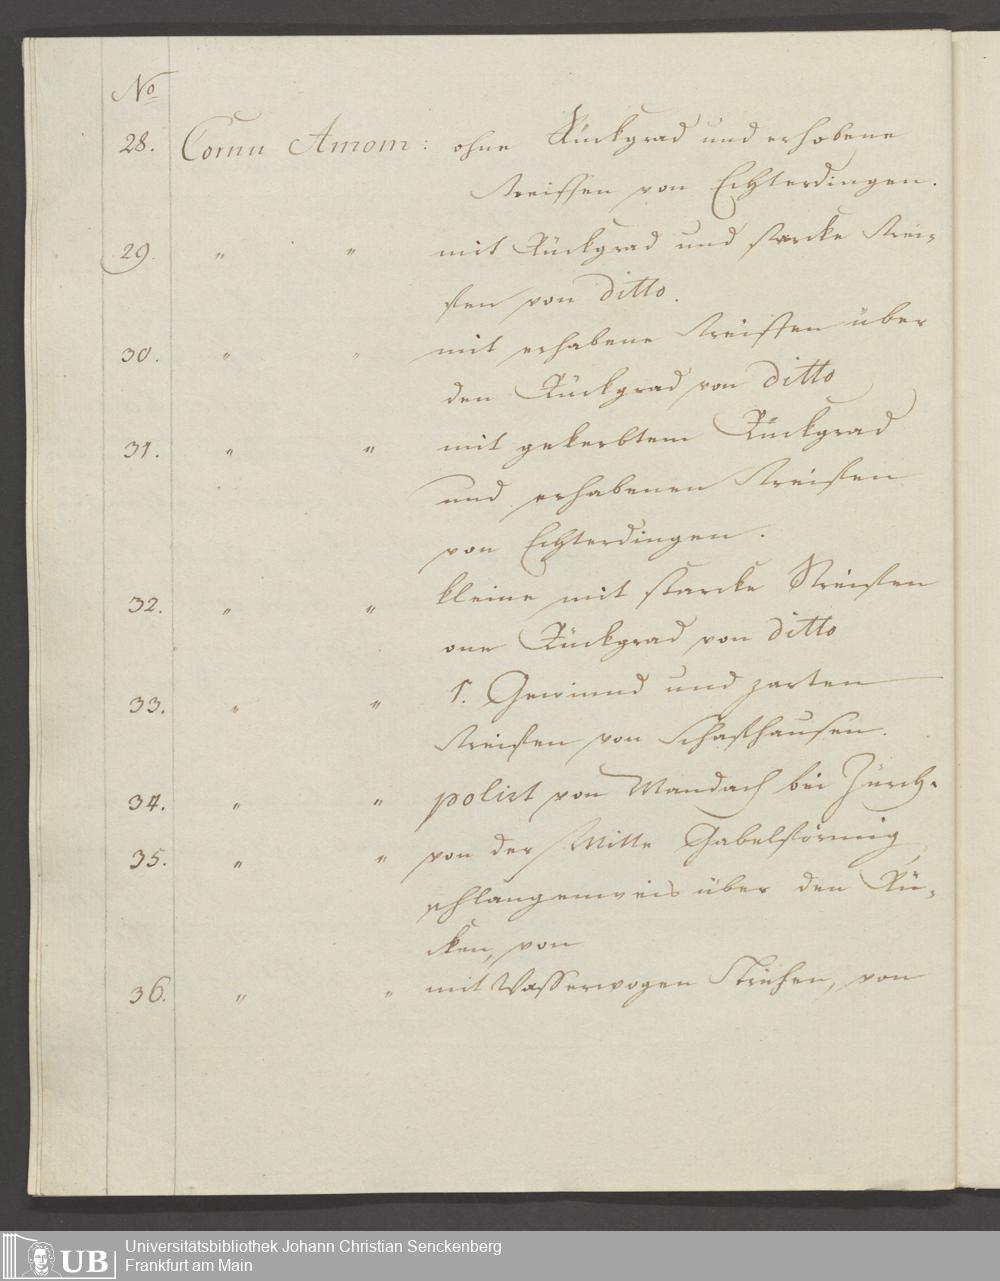 No
28. Cornu Amom: ohne Rückgrad und erhobene
Streiffen von Echterdingen.
29. " " mit Rückgrad und starcke Strei-
fen von ditto.
30. " " mit erhabene Streiffen über
den Rückgrad von ditto
31. " " mit gekerbtem Rückgrad
und erhabenen Streifen
von Echterdingen.
32. " " kleine mit starcke Streifen
one Rückgrad von ditto
33. " " Gewinnd und zarten
Streifen von Schafhausen.
34. " " polirt von Mandach bei Zürch.
35. " " von der Mitte Gabelförmig
schlangenweis über den Rü-
cken, von
36. " " mit Wasserwogen Striefen, von
Universitätsbibliothek Johann Christian Senckenberg
Frankfurt am Main
UB